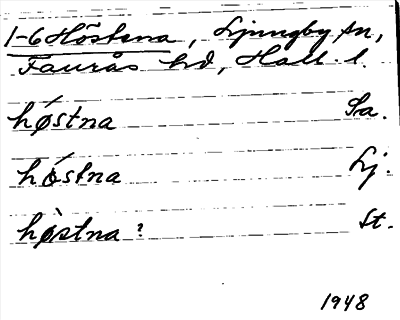 1-6 Höstena, Ljungby sn,
Faurås hd, Hall. l.
hǿstna Sa.
hǿstna Lj.
hø̀stna? St.
1948